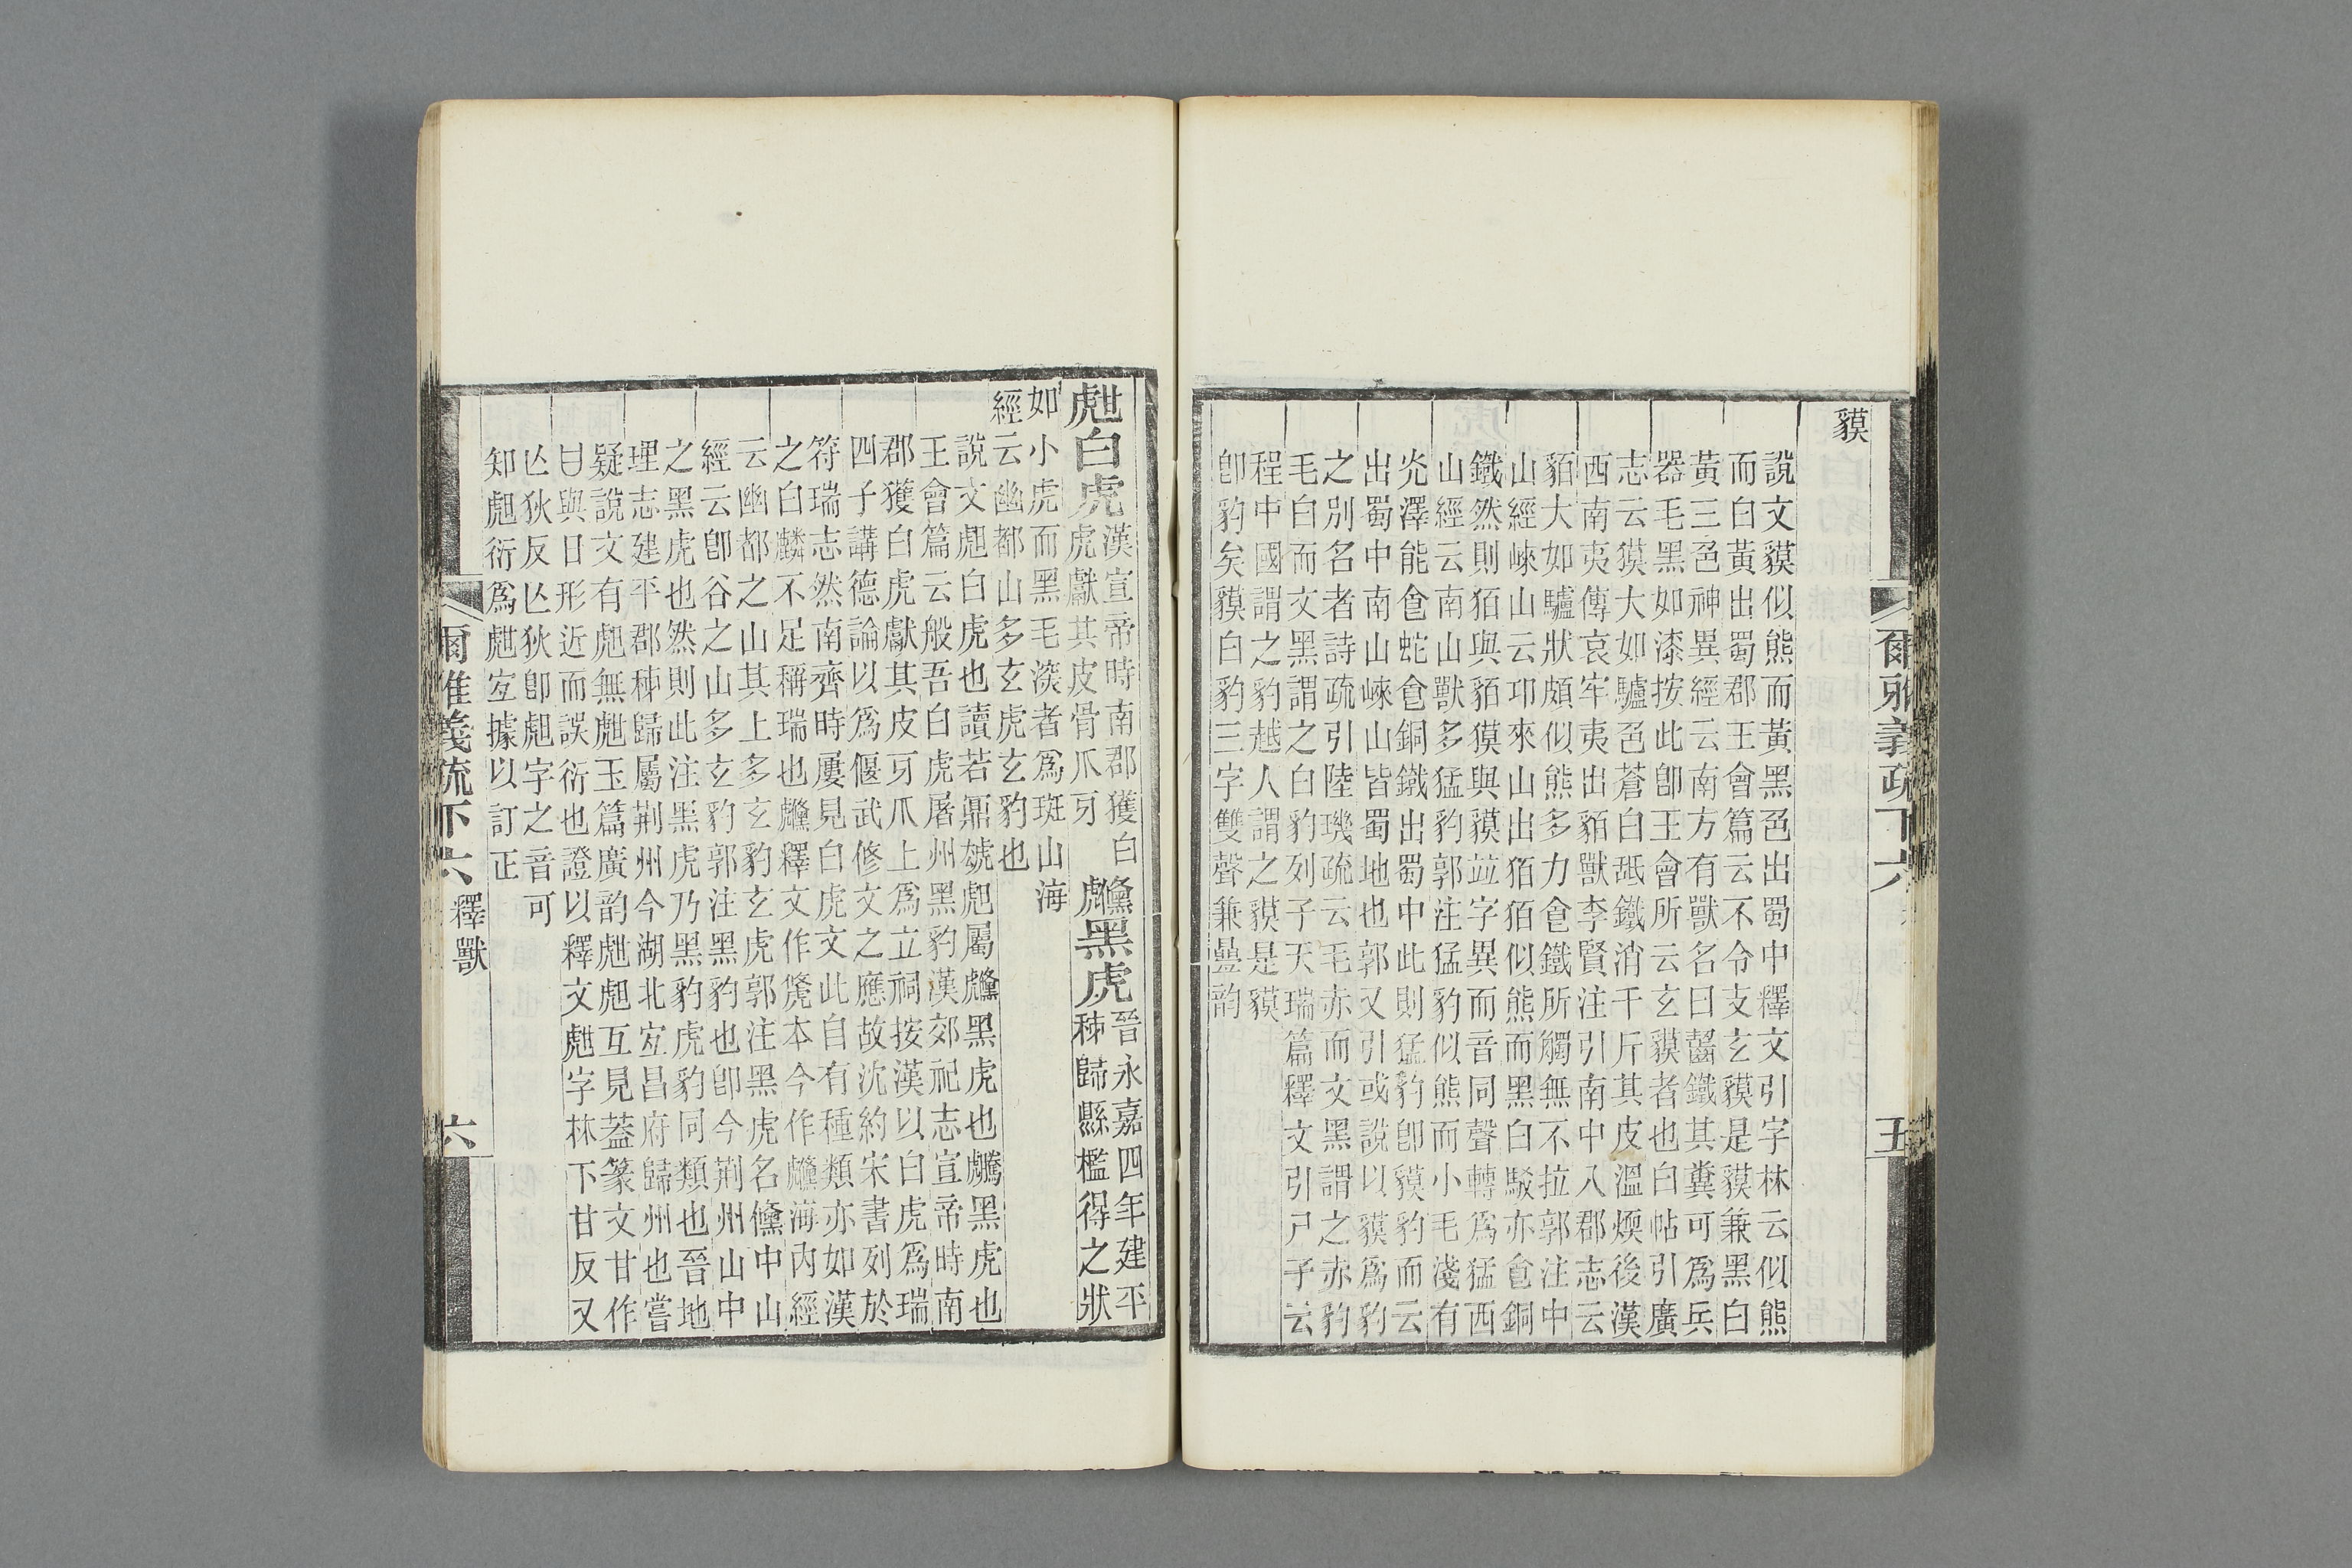 爾雅義疏下六
五
貘
說文貘似熊而黃黑色出蜀中釋文引字林云似熊
而白黃出蜀郡王會篇云不令支玄貘是貘兼黑白
黃三色神異經云南方有獸名曰齧鐵其糞可爲兵
器毛黑如漆按此卽王會所云玄貘者也白帖引廣
志云獏大如驢色蒼白䑛鐵消千斤其皮溫煗後漢
西南夷傳哀牢夷出貊獸李賢注引南中八郡志云
貊大如驢狀頗似熊多力食鐵所觸無不拉郭注中
山經崍山云邛來山出狛狛似熊而黑白駁亦食銅
鐵然則狛與貊獏與貘竝字異而音同聲轉爲猛西
山經云南山獸多猛豹郭注猛豹似熊而小毛淺有
光澤能食蛇食銅鐵出蜀中此則猛豹卽貘豹而云
出蜀中南山崍山皆蜀地也郭又引或說以貘爲豹
之別名者詩疏引陸璣疏云毛赤而文黑謂之赤豹
毛白而文黑謂之白豹列子天瑞篇釋文引尸子云
程中國謂之豹越人謂之貘是貘
卽豹矣貘白豹三字雙聲兼曡韵
甝白虎
漢宣帝時南郡獲白
虎獻其皮骨爪牙
虪黑虎
晉永嘉四年建平
秭歸縣檻得之狀
如小虎而黑毛深者爲斑山海
經云幽都山多玄虎玄豹也
說文甝白虎也讀若鼏虦虎屬虪黑虎也䲢黑虎也
王會篇云般吾白虎屠州黑豹漢郊祀志宣帝時南
郡獲白虎獻其皮牙爪上爲立祠按漢以白虎爲瑞
四子講德論以爲偃武修文之應故沈約宋書列於
符瑞志然南齊時屢見白虎文此自有種類亦如漢
之白麟不足稱瑞也虪釋文作儵本今作虪海內經
云幽都之山其上多玄豹玄虎郭注黑虎名虪中山
經云卽谷之山多玄豹郭注黑豹也卽今荆州山中
之黑虎也然則此注黑虎乃黑豹虎豹同類也晉地
理志建平郡秭歸屬荆州今湖北宜昌府歸州也嘗
疑說文有甝無甝玉篇廣韵甝甝互見葢篆文甘作
甘與日形近而誤衍也證以釋文甝字林下甘反又
亾狄反亾狄卽甝字之音可
知甝衍爲甝宜據以訂正
爾雅義疏下六
釋獸
六